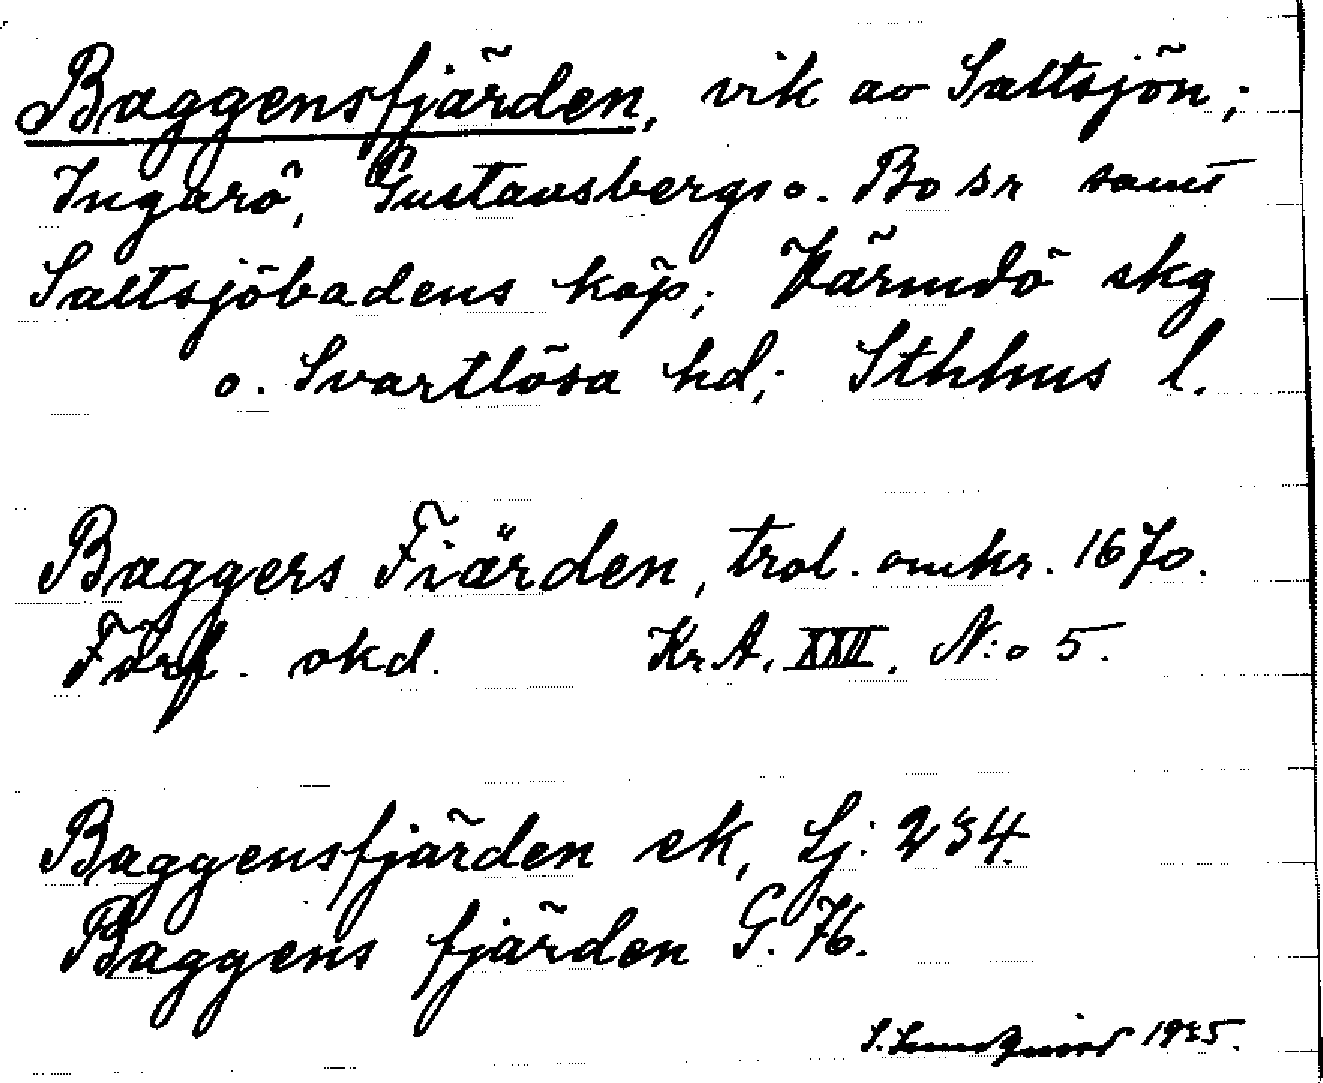 Baggensfjärden, vik av Saltsjön;
Ingarö, Gustavsbergs o. Bo snr samt
Saltsjöbadens köp; Värmdö skg
o. Svartlösa hd; Sthlms l.
Baggers Fiärden, trol. omkr. 1670.
Förf. okd. KrA. XXII. N:o 5.
Baggensfjärden ek, Lj: 234.
Baggens fjärden G. 76.
1935.